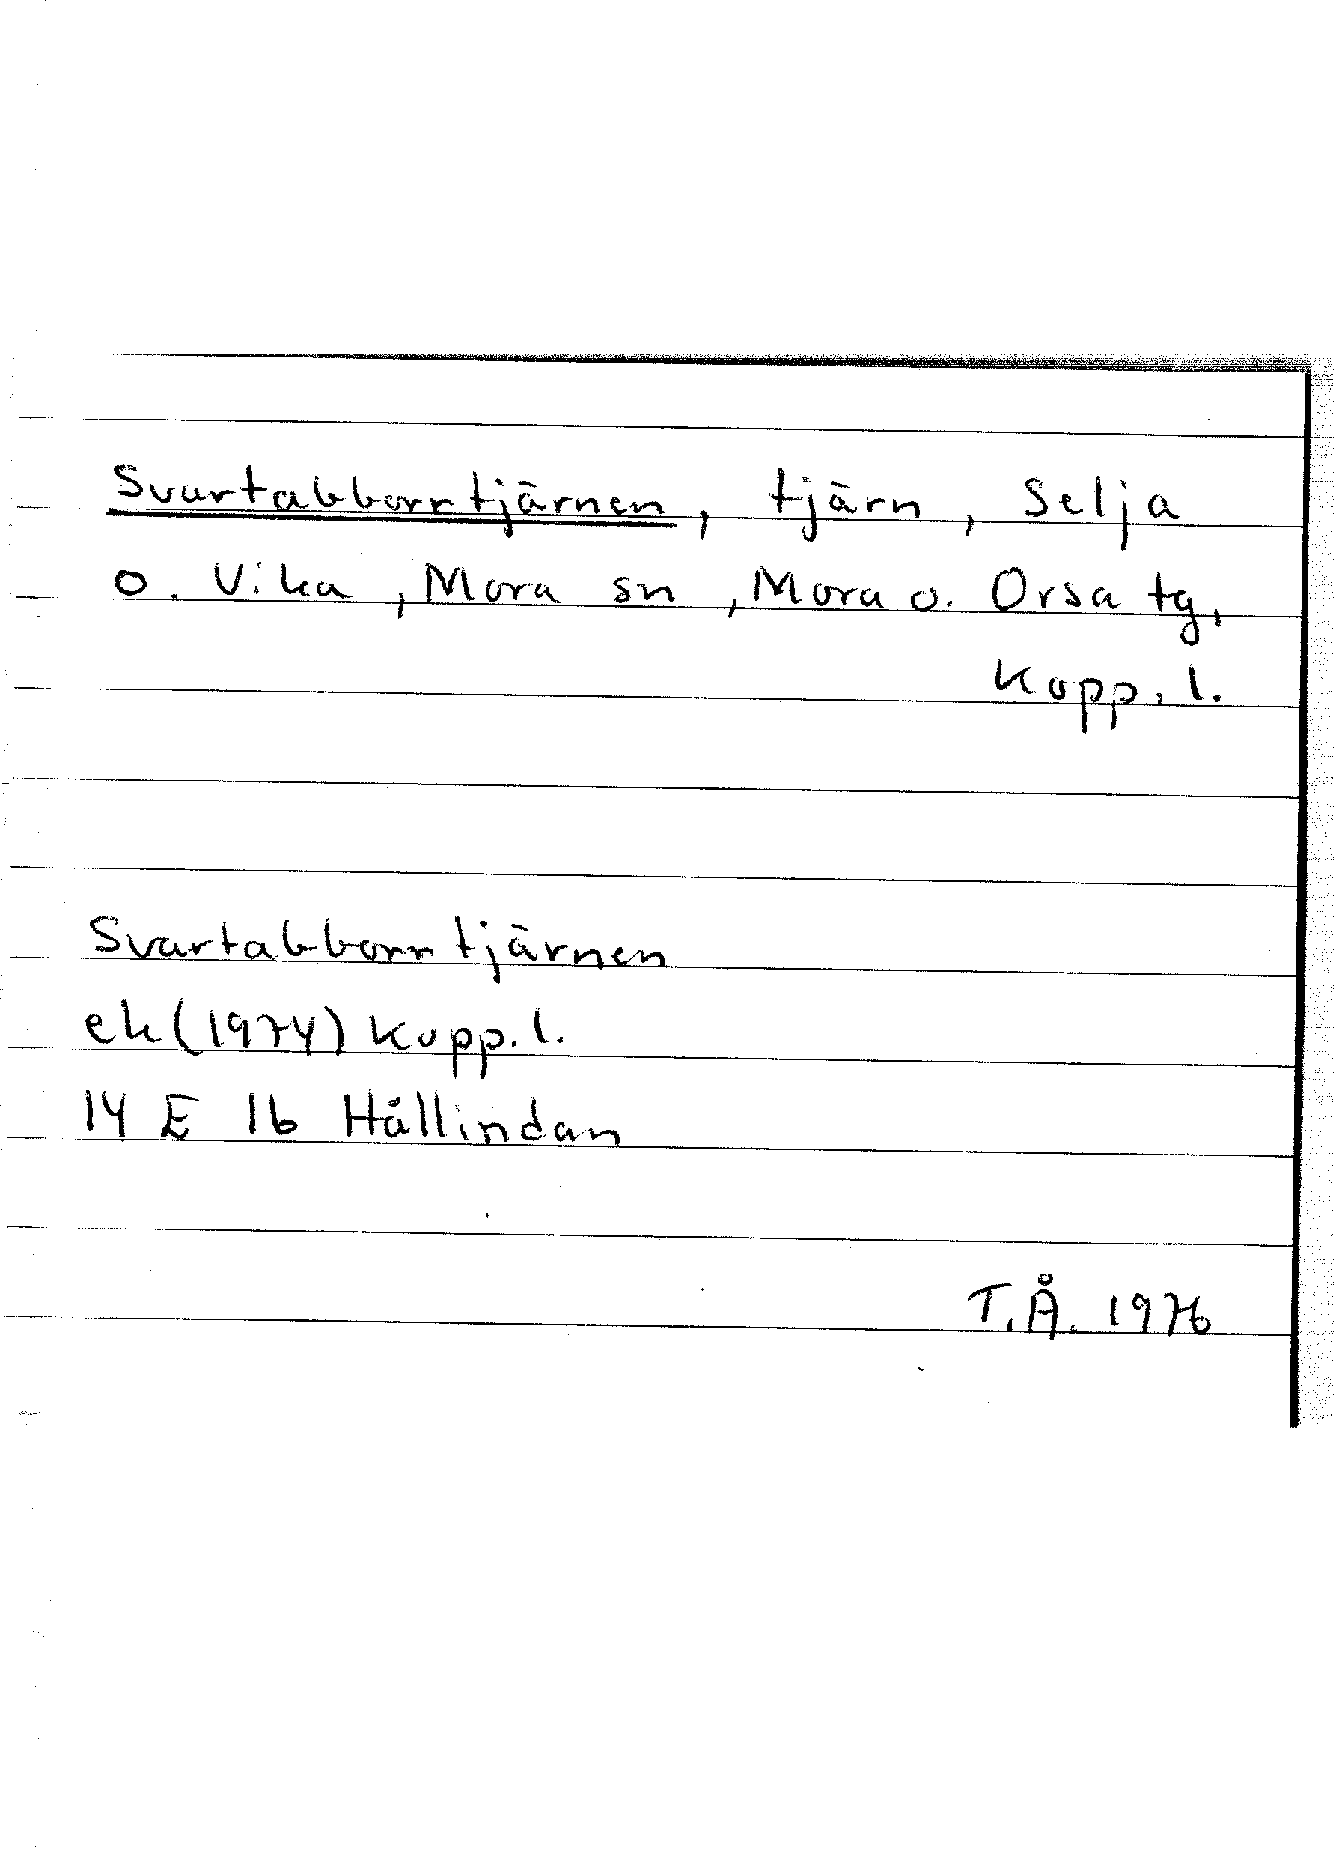 Svartabborrtjärnen, tjärn, Selja
o. Vika, Mora sn, Mora o. Orsa tg,
Kopp. l.
Svartabborrtjärnen
ek (1974) Kopp. l.
14 E 1b Hållindan
T.Å. 1976